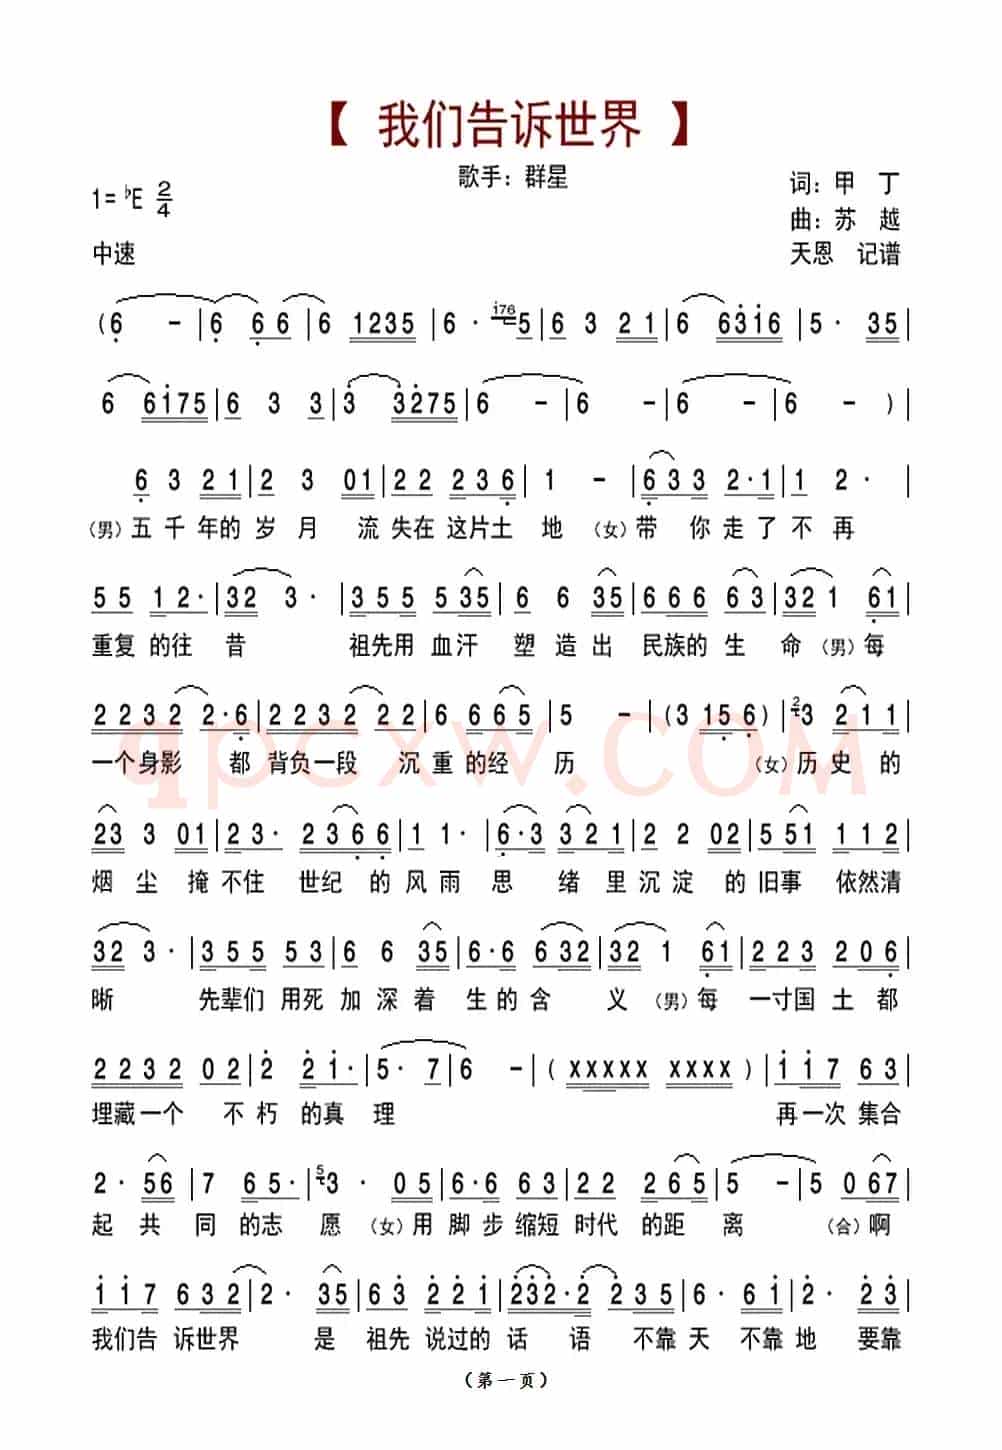 【 我们告诉世界 】
歌手：群星
1= ♭E 2/4
词：甲 丁
曲：苏 越
中速
天恩 记谱
( 6 - | 6 6 6 | 6 1235 | 6 · i76 5 | 6 3 21 | 6 63i6 | 5 · 35 |
6 6i75 | 6 3 3 | 3 3275 | 6 - | 6 - | 6 - | 6 - ) |
6 3 21 | 2 3 01 | 22 236 | 1 - | 633 2·1 | 1 2 · |
（男）五千年的岁月 流失在这片土地（女）带你走了不再
55 12· | 32 3 · | 355 535 | 6 6 35 | 666 63 | 32 1 61 |
重复的往昔 祖先用血汗塑造出民族的生命（男）每
2232 2·6 | 2232 22 | 6 665 | 5 - | (3 156) | 2 3 211 |
一个身影 都背负一段沉重的经历 （女）历史的
23 3 01 | 23· 2366 | 1 1· | 6·3 321 | 2 2 02 | 5 51 112 |
烟尘掩不住世纪的风雨思绪里沉淀的旧事依然清
32 3 · | 355 53 | 6 6 35 | 6·6 632 | 32 1 61 | 223 206 |
晰 先辈们用死加深着生的含义（男）每一寸国土都
2232 02 | 2 2i· | 5· 7 | 6 - | ( xxxxx xxxx ) | i i7 63 |
埋藏一个不朽的真理 再一次集合
2 · 56 | 7 65· | 5 3 · 05 | 6·6 63 | 22 265 | 5 - | 5 067 |
起共同的志愿（女）用脚步缩短时代的距离 （合）啊
ii7 632 | 2 · 35 | 63 22i | 232·2 235 | 6 · 6i | 2 · 23 |
我们告诉世界 是祖先说过的话语不靠天不靠地要靠
（第一页）
qpcxw.COM